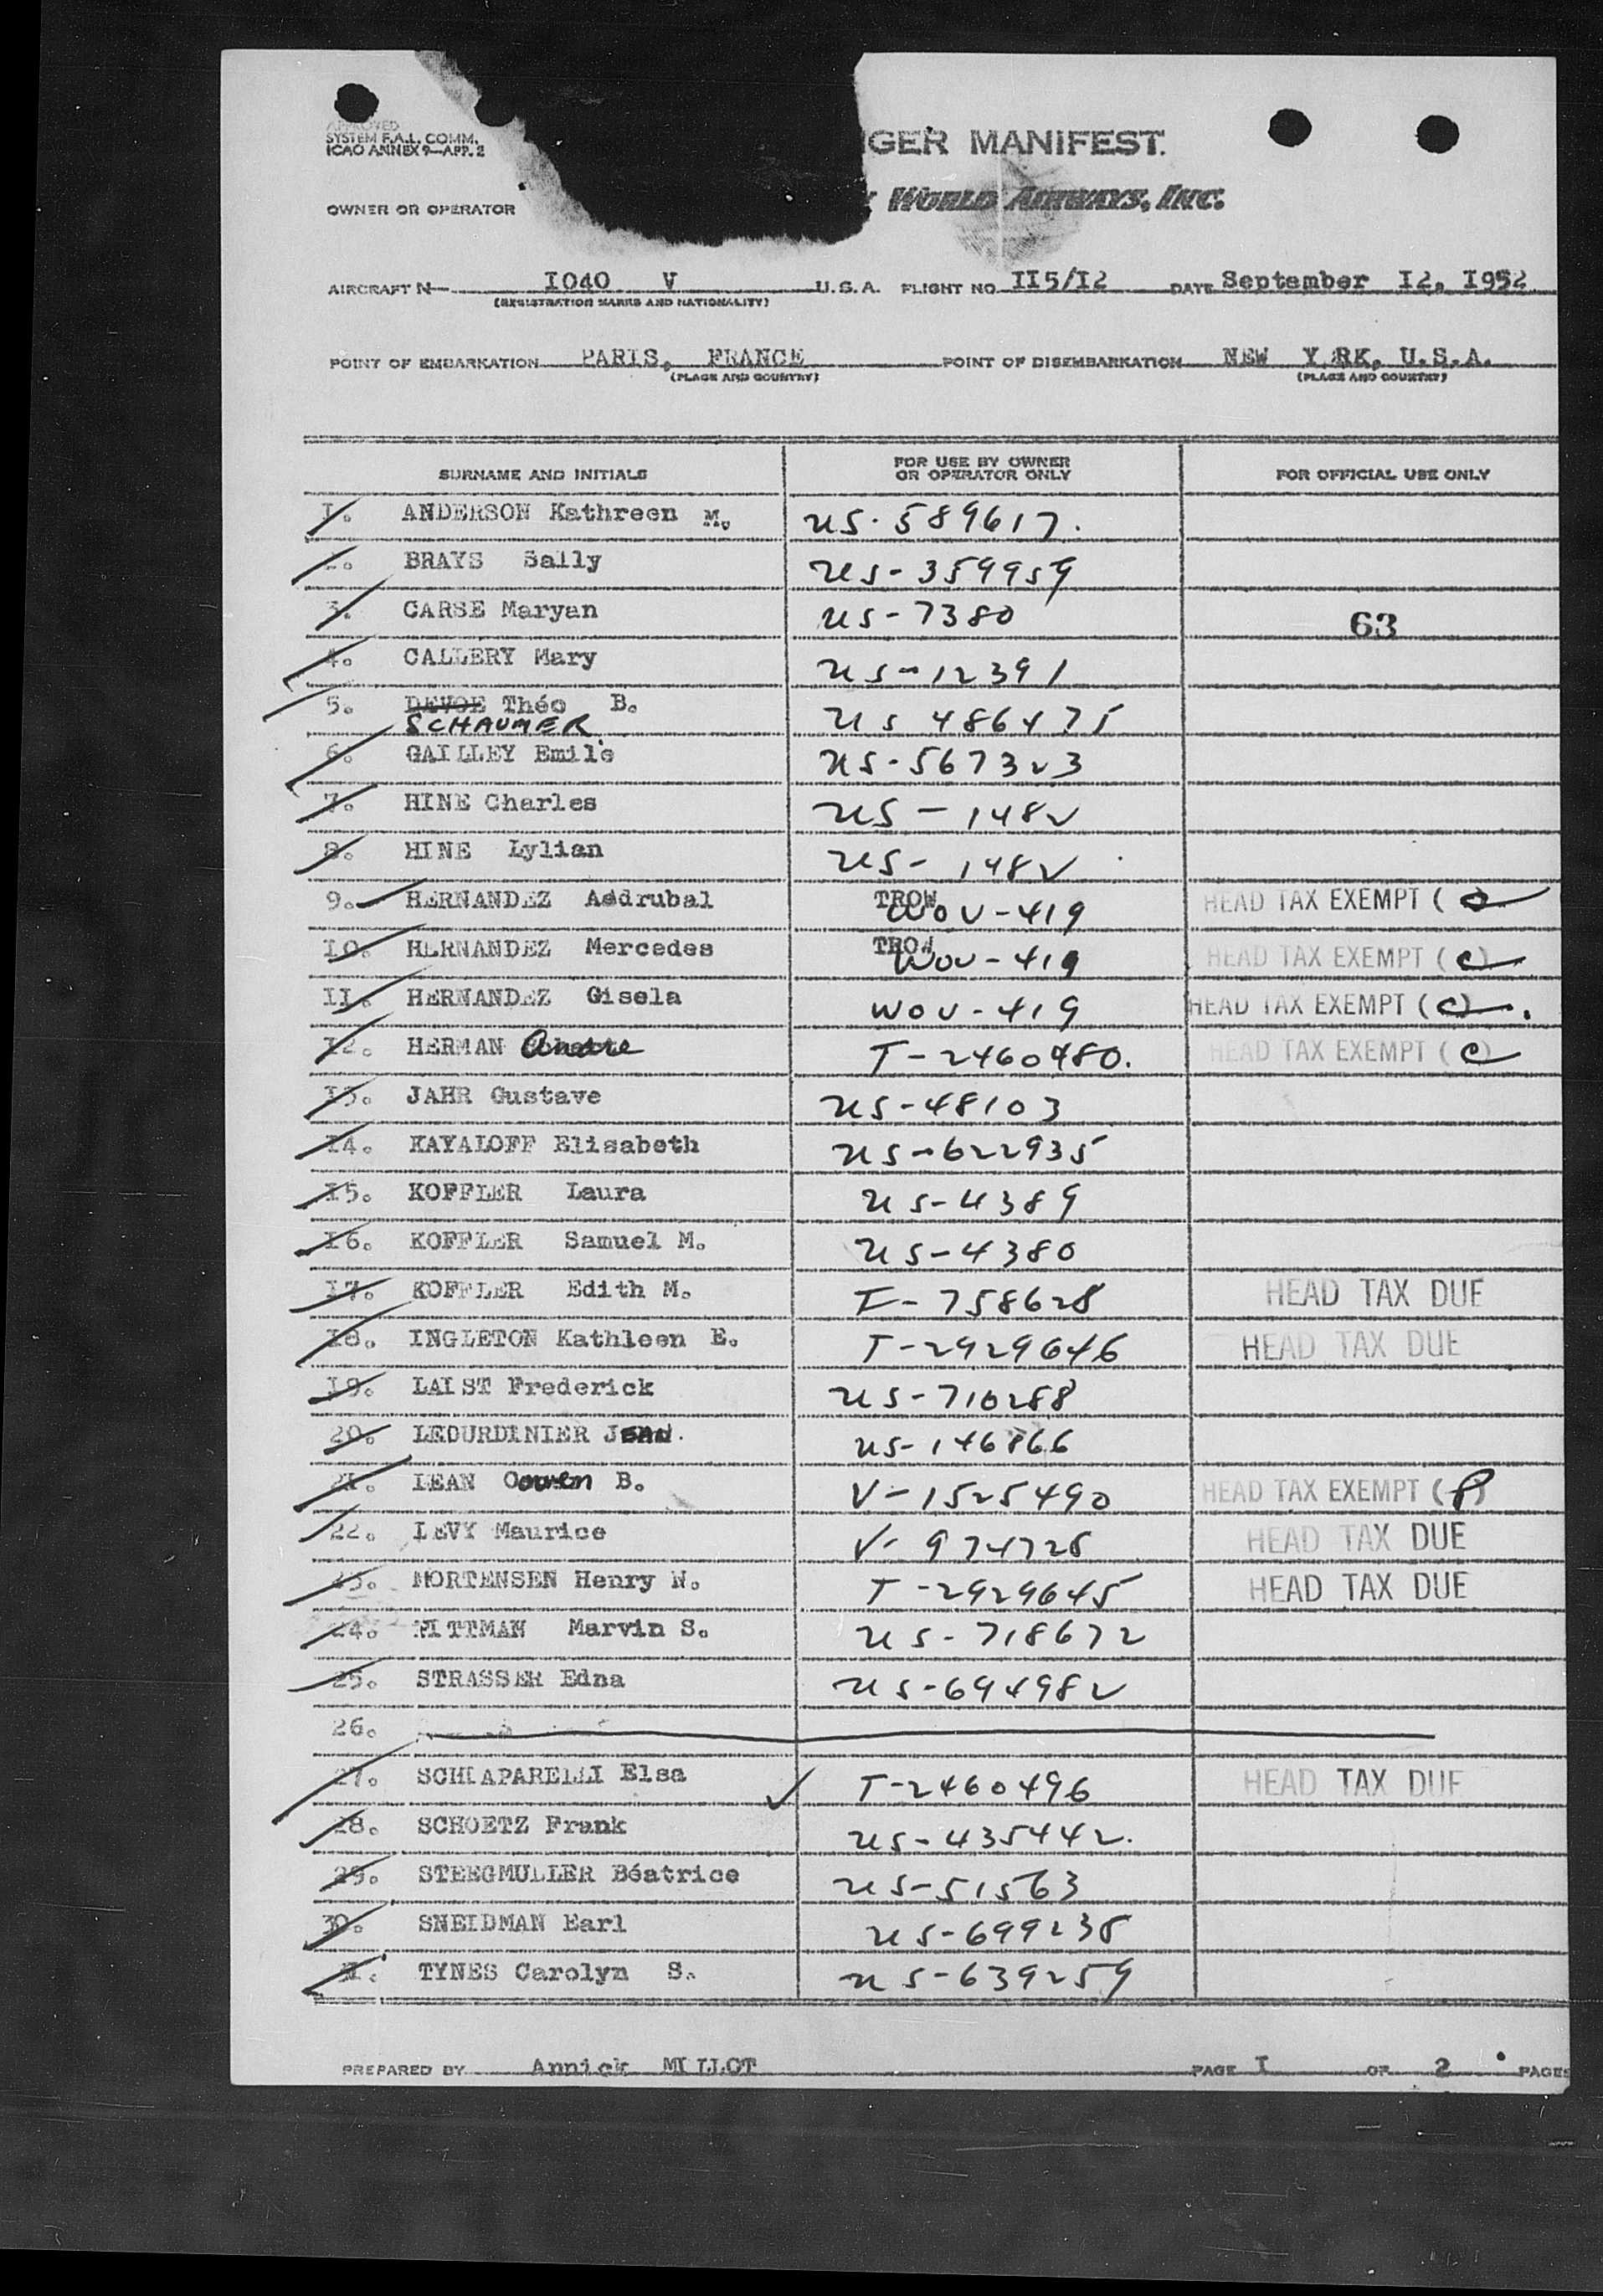 APPROVED
SYSTEM F.A.L. COMM.
ICAO ANNEX 9—APP. 2
GER MANIFEST.
OWNER OR OPERATOR WORLD AIRWAYS, INC.
AIRCRAFT N— I040 V U.S.A. FLIGHT NO. II5/I2 DATE September I2, I952
(REGISTRATION MARKS AND NATIONALITY)
POINT OF EMBARKATION PARIS, FRANCE POINT OF DISEMBARKATION NEW Y RK, U.S.A.
(PLACE AND COUNTRY) (PLACE AND COUNTRY)
SURNAME AND INITIALS FOR USE BY OWNER OR OPERATOR ONLY FOR OFFICIAL USE ONLY
I. ANDERSON Kathreen M. US-589617.
2. BRAYS Sally US-359959
3. CARSE Maryan US-7380 63
4. CALLERY Mary US-12391
5. DEVOE Théo B. US 486475
SCHAUMER
6. GAILLEY Emile US-567323
7. HINE Charles US-1482
8. HINE Lylian US-1482
9. HERNANDEZ Asdrubal TROW WOV-419 HEAD TAX EXEMPT (
I0. HERNANDEZ Mercedes TROW WOV-419 HEAD TAX EXEMPT (C)
II. HERNANDEZ Gisela WOV-419 HEAD TAX EXEMPT (C)
I2. HERMAN Andre T-2460480. HEAD TAX EXEMPT (C)
I3. JAHR Gustave US-48103
I4. KAYALOFF Elisabeth US-622935
I5. KOFFLER Laura US-4389
I6. KOFFLER Samuel M. US-4380
I7. KOFFLER Edith M. 758628 HEAD TAX DUE
I8. INGLETON Kathleen E. T-2929646 HEAD TAX DUE
I9. LAIST Frederick US-710288
20. LEDURDINIER US-146866
2I. LEAN Owen B. V-1525490 HEAD TAX EXEMPT (P)
22. LEVY Maurice V-974728 HEAD TAX DUE
23. MORTENSEN Henry N. T-2929645 HEAD TAX DUE
24. PITTMAN Marvin S. US-718672
25. STRASSER Edna US-694982
26.
27. SCHIAPARELLI Elsa T-2460496 HEAD TAX DUE
28. SCHOETZ Frank US-435442.
29. STEEGMULLER Béatrice US-51563
30. SNEIDMAN Earl US-699238
TYNES Carolyn S. US-639259
PREPARED BY Annick MILLOT PAGE I OF 2 PAGES